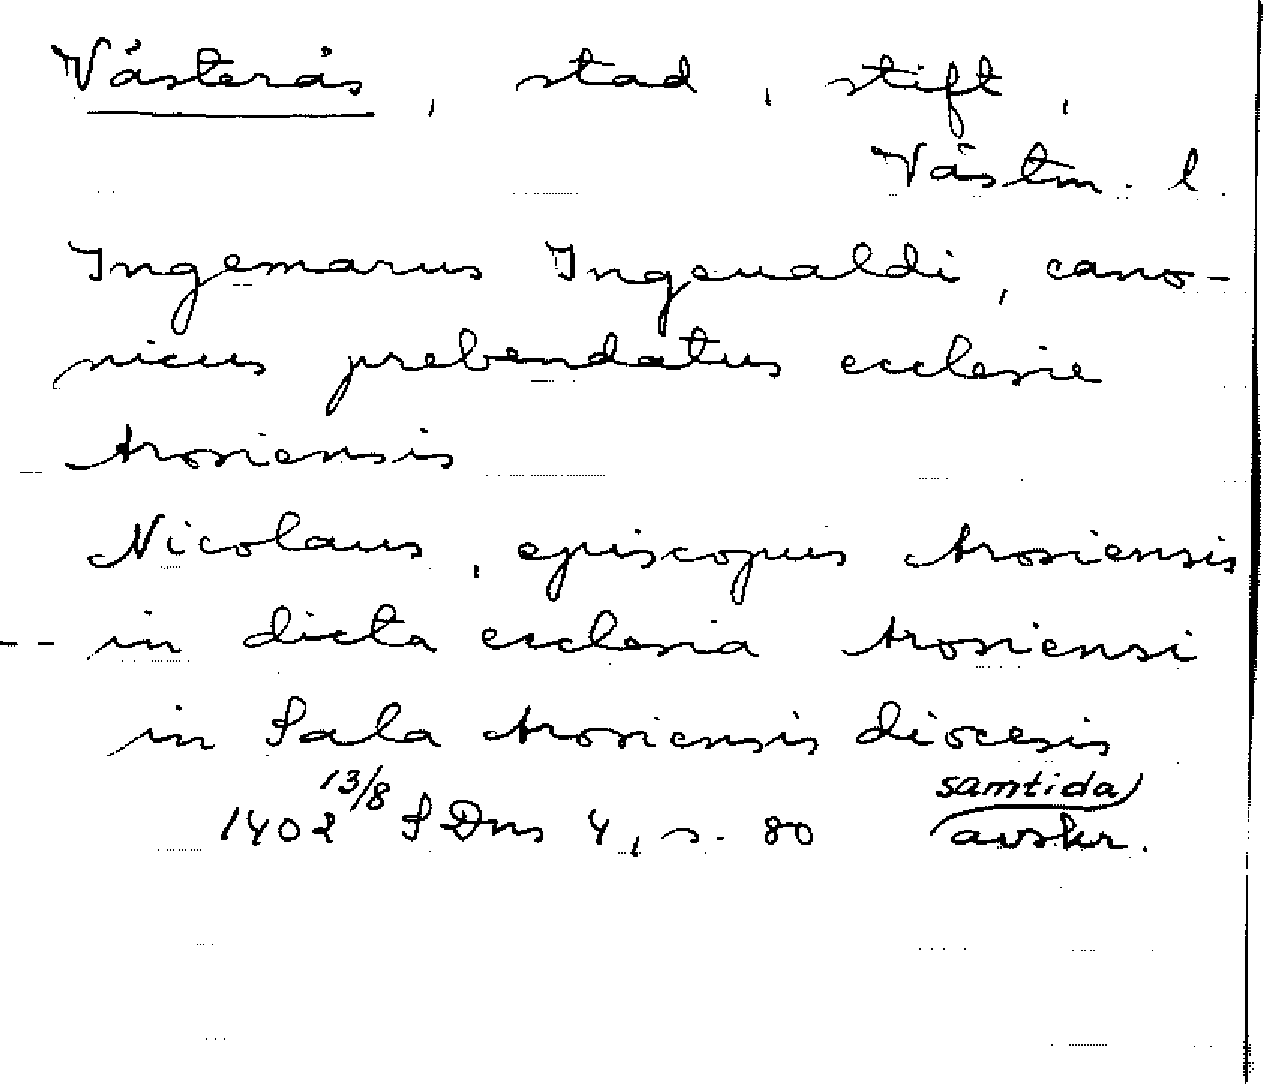 Västerås, stad, stift,
Västm. l.
Ingemarus Ingeualdi, cano-
nicus prebendatus ecclesie
Arosiensis
Nicolaus, episcopus Arosiensis
in dicta ecclesia Arosiensi
in Sala Arosiensis diocesis
1402 13/8 SDns 4, s. 80 (samtida) avskr.